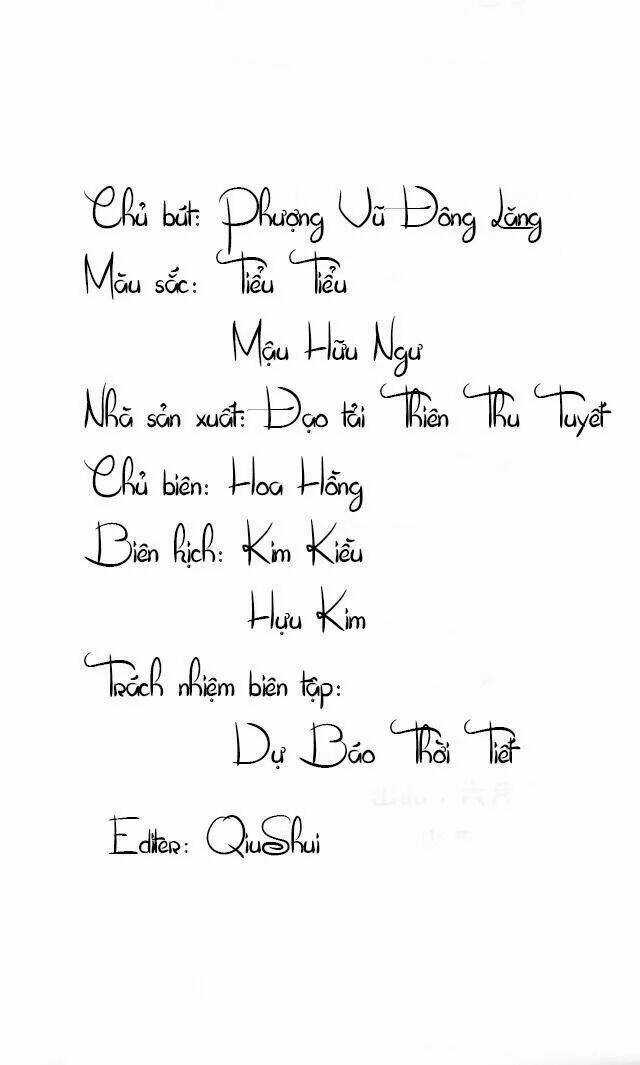 Chủ bút: Phượng Vũ Đông Lăng
Màu sắc: Tiểu Tiểu
Mậu Hữu Ngư
Nhà sản xuất: Đạo tải Thiên Thu Tuyết
Chủ biên: Hoa Hồng
Biên kịch: Kim Kiều
Hựu Kim
Trách nhiệm biên tập:
Dự Báo Thời Tiết
Editer: QiuShui